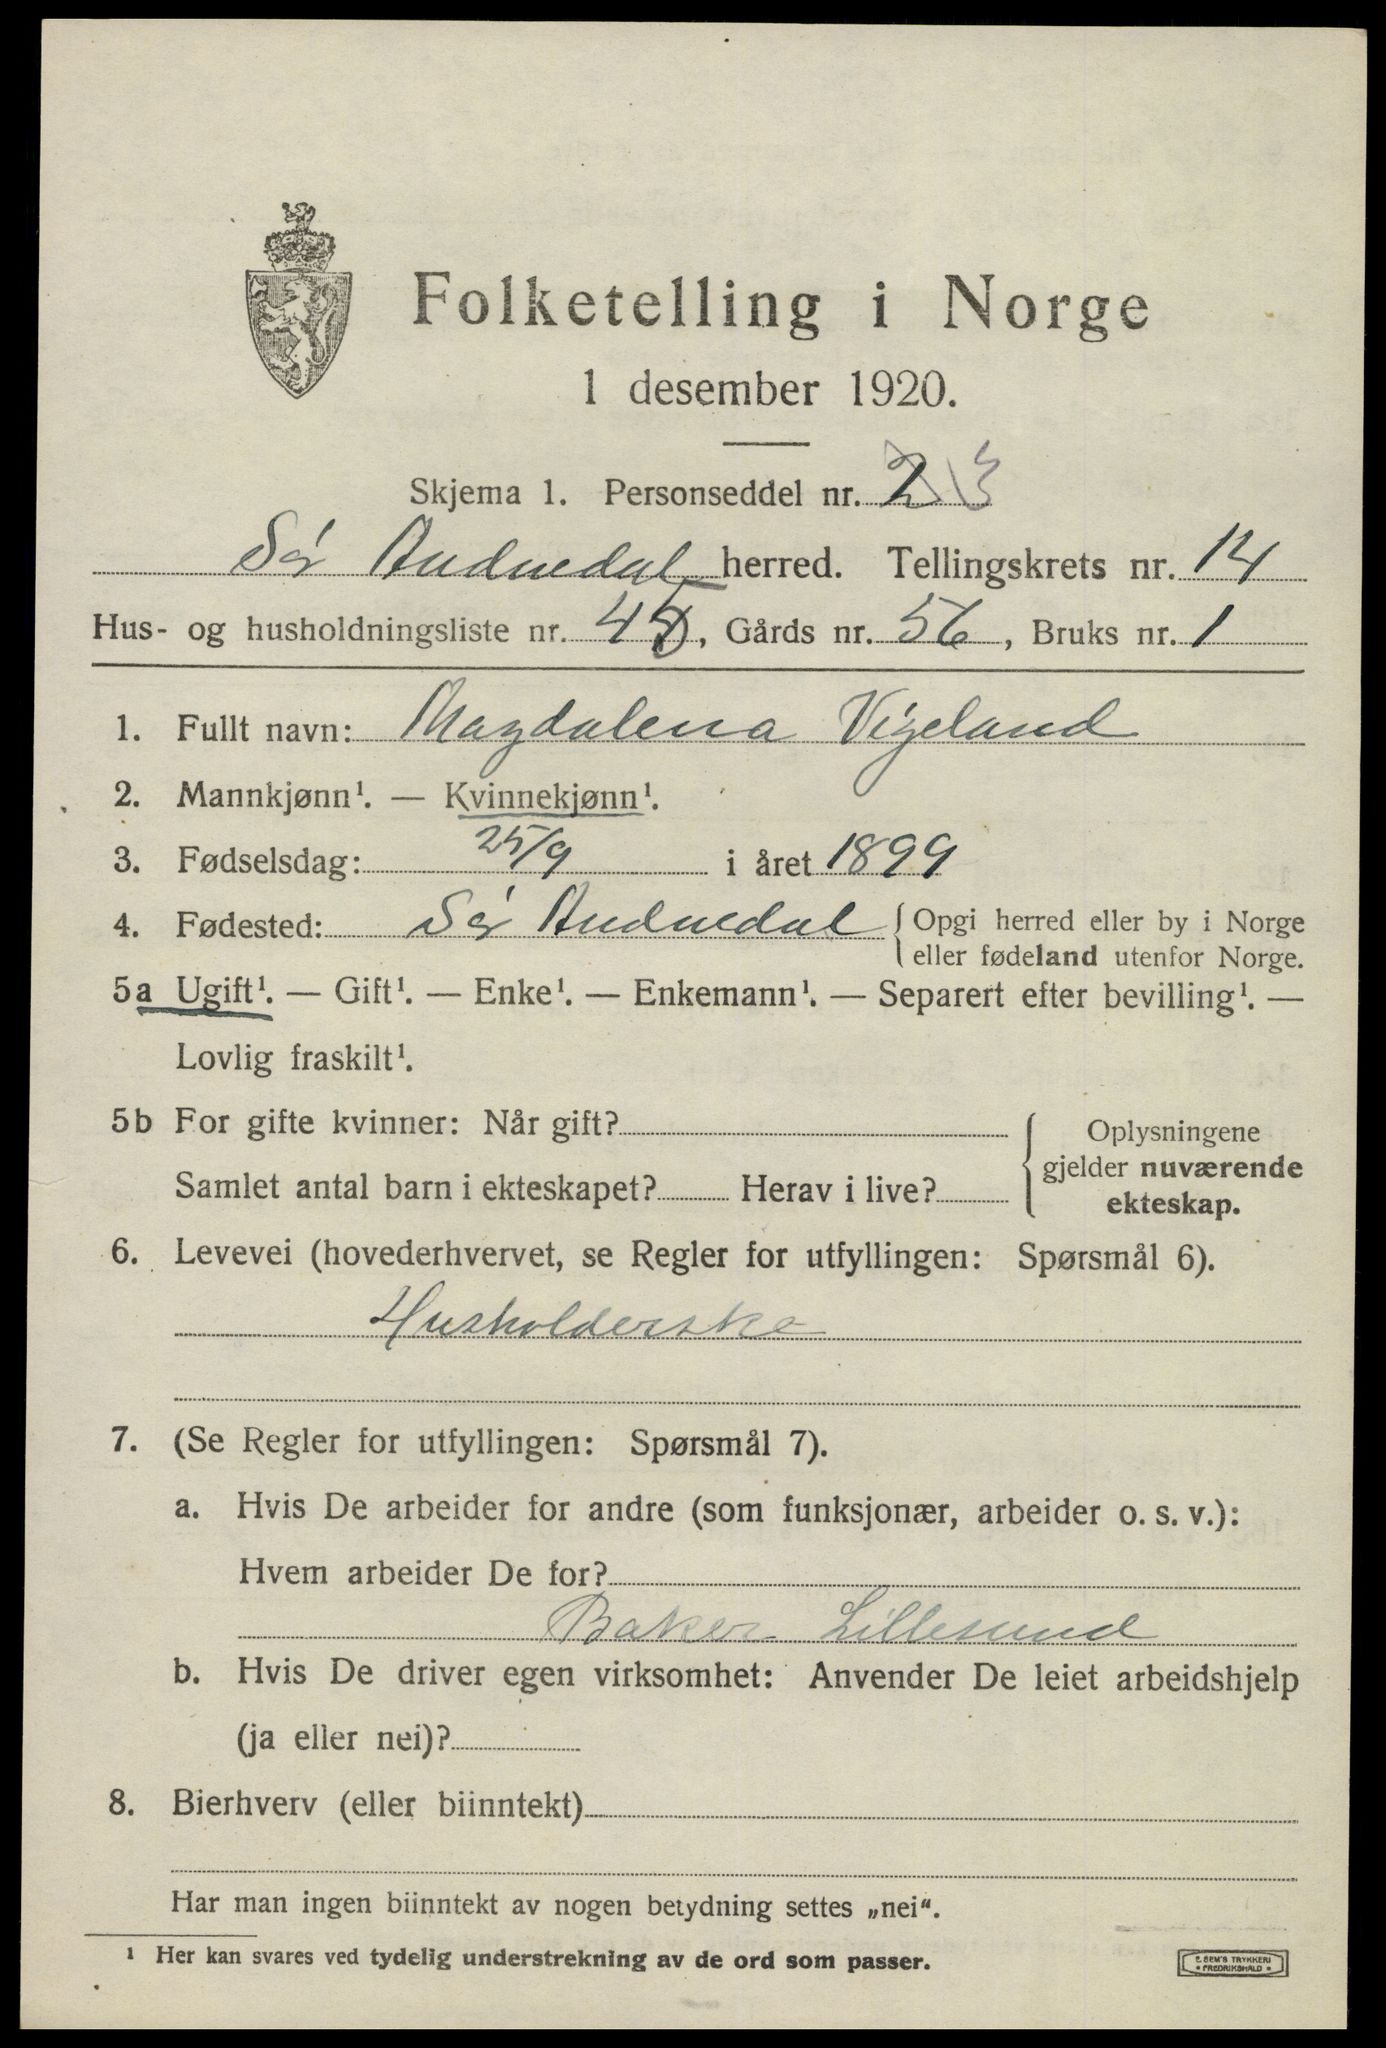 Folketelling i Norge
1 desember 1920.
Skjema 1. Personseddel nr. 2 3
Sør Audnedal herred. Tellingskrets nr. 14
Hus- og husholdningsliste nr. 45, Gårds nr. 56, Bruks nr. 1
1. Fullt navn: Magdalena Vigeland
2. Mannkjønn¹. — Kvinnekjønn¹.
3. Fødselsdag: 25/9 i året 1899
4. Fødested: Sør Audnedal { Opgi herred eller by i Norge
eller fødeland utenfor Norge.
5a Ugift¹. — Gift¹. — Enke¹. — Enkemann¹. — Separert efter bevilling¹. —
Lovlig fraskilt¹.
5b For gifte kvinner: Når gift?
Samlet antal barn i ekteskapet? Herav i live?
Oplysningene
gjelder nuværende
ekteskap.
6. Levevei (hovederhvervet, se Regler for utfyllingen: Spørsmål 6).
Husholderske
7. (Se Regler for utfyllingen: Spørsmål 7).
a. Hvis De arbeider for andre (som funksjonær, arbeider o. s. v.):
Hvem arbeider De for?
Baker Lillesund
b. Hvis De driver egen virksomhet: Anvender De leiet arbeidshjelp
(ja eller nei)?
8. Bierhverv (eller biinntekt)
Har man ingen biinntekt av nogen betydning settes „nei“.
¹ Her kan svares ved tydelig understrekning av de ord som passer.
E. SEM'S TRYKKERI
• FREDRIKSHALD •